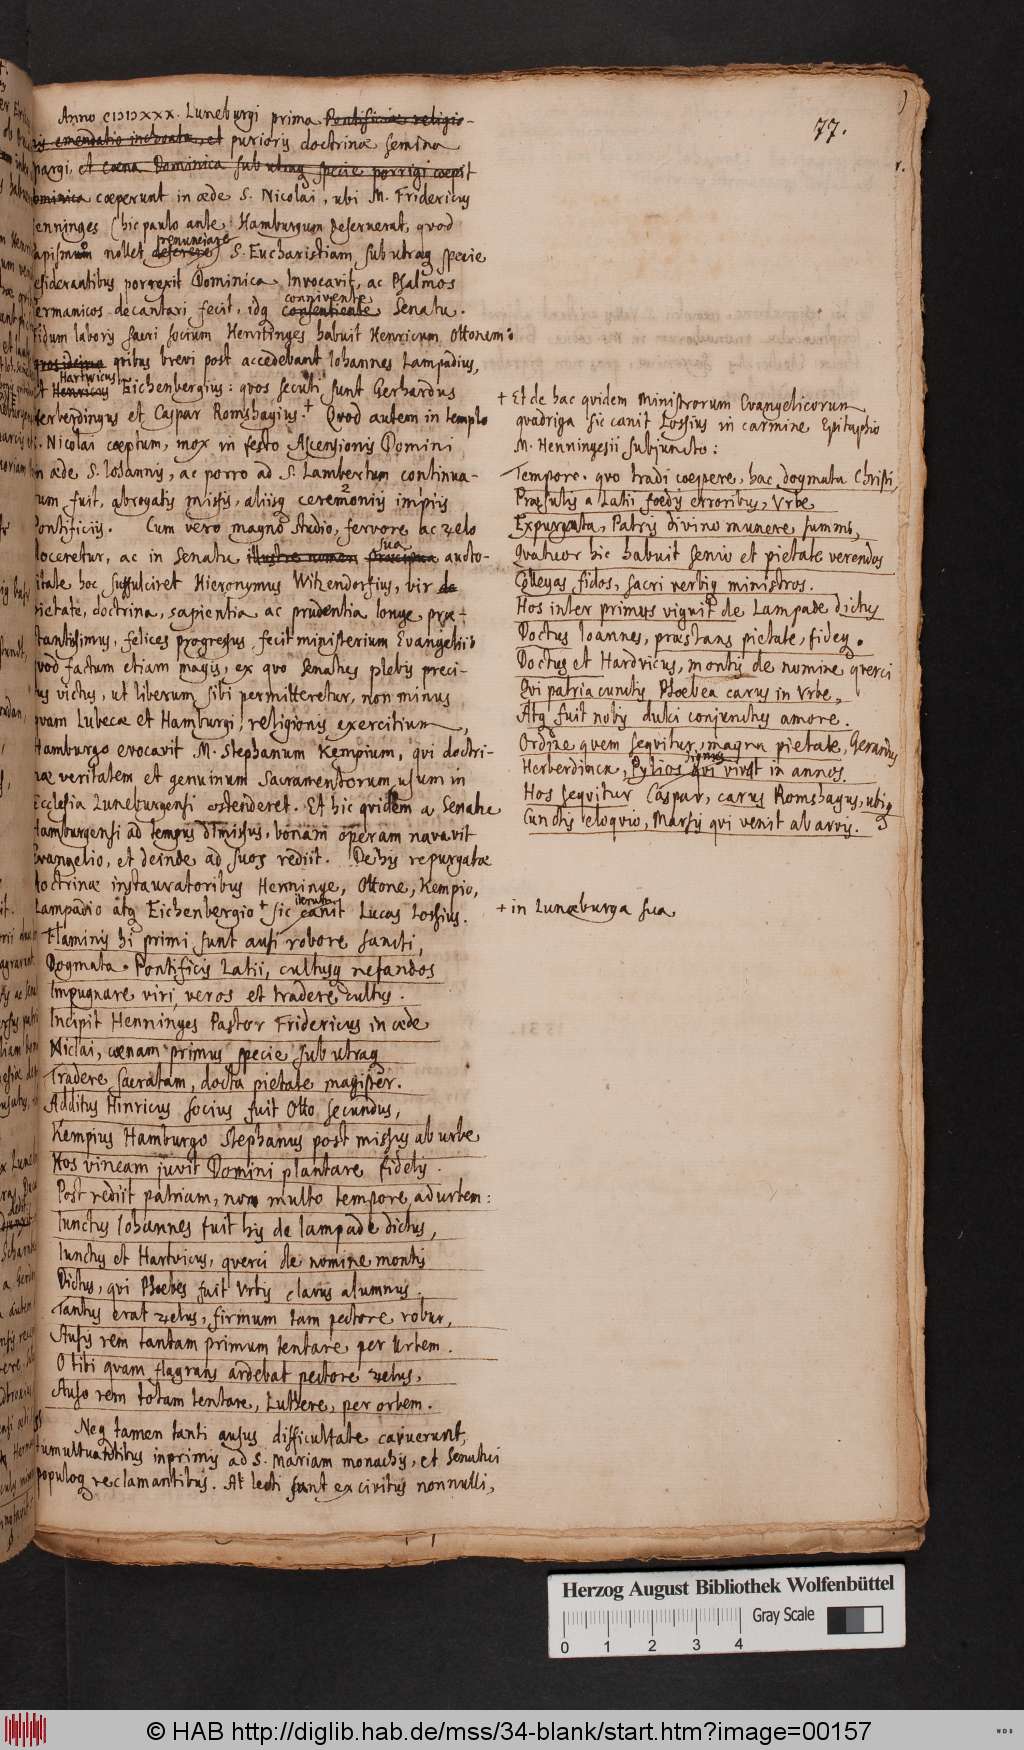 77.
Anno CIƆIƆXXX. Luneburgi prima Pontificiae religio-
nis emendatio inchoata, et purioris doctrinae semina
spargi, et coena Dominica sub utraq specie porrigi coepit
Dominica coeperunt in aede S. Nicolai, ubi M. Fridericus
Henninges (hic paulo ante Hamburgum deseruerat, quod
Papismum nollet deserere renunciare) S. Eucharistiam sub utraq specie
desiderantibus porrexit Dominica Invocavit, ac Psalmos
Germanicos decantari fecit, idq consentiente connivente Senatu.
Fidum laboris sacri socium Henninges habuit Henricum Ottonem:
quos idcirco quibus brevi post accedebant Iohannes Lampadius,
et Henricus Hartwicus Eichenbergius: quos secuti sunt Gerhardus
Herberdingus et Caspar Romshagius.+ Quod autem in templo
S. Nicolai coeptum, mox in festo Ascensionis Domini
in aede S. Iohannis, ac porro ad S. Lambertum continua-
tum fuit, abrogatis missis, aliisq ceremoniis impiis
Pontificiis. Cum vero magno studio, fervore ac zelo
doceretur, ac in Senatu illustre nomen praecipua sua aucto-
ritate hoc suffulciret Hieronymus Witzendorfius, vir de
pietate, doctrina, sapientia ac prudentia longe prae-
stantissimus, felices progressus fecit ministerium Evangelii:
quod factum etiam magis, ex quo Senatus plebis preci-
bus victus, ut liberum sibi permitteretur, non minus
quam Lubecae et Hamburgi, religionis exercitium,
Hamburgo evocavit M. Stephanum Kempium, qui doctri-
nae veritatem et genuinum Sacramentorum usum in
Ecclesia Luneburgensi ostenderet. Et hic quidem a Senatu
Hamburgensi ad tempus dimissus, bonam operam navavit
Evangelio, et deinde ad suos rediit. De his repurgatae
doctrinae instauratoribus Henninge, Ottone, Kempio,
Lampadio atq Eichenbergio+ sic canit iterum Lucas Lossius.
Flaminis hi primi sunt ausi robore sancti,
Dogmata Pontificis Latii, cultusq nefandos
Impugnare viri, veros et tradere cultus.
Incipit Henninges Pastor Fridericus in aede
Niclai, coenam primus specie sub utraq
Tradere sacratam, docta pietate magister.
Additus Hinricus socius fuit Otto secundus,
Kempius Hamburgo Stephanus post missus ab urbe
Hos vineam juvit Domini plantare fidelis.
Post rediit patriam, non multo tempore, ad urbem:
Iunctus Iohannes fuit his de lampade dictus,
Iunctus et Hartvicus, querci de nomine montis
Dictus, qui Phoebes fuit Urbis clarus alumnus.
Tantus erat zelus, firmum tam pectore robur,
Ausis rem tantam primum tentare per Urbem.
O tibi quam flagrans ardebat pectore zelus,
Auso rem totam tentare, Luthere, per orbem.
Neq tamen tanti ausus difficultate caruerunt,
tumultuantibus inprimis ad S. Mariam monachis, et Senatui
populoq reclamantibus. At lecti sunt ex civibus nonnulli,
+ Et de hac quidem Ministrorum Evangelicorum
quadriga sic canit Lossius in carmine Epitaphio
M. Henningesii subjuncto:
Tempore quo tradi coepere, hac dogmata Christi,
Praesulis a Latii foedis erroribus, Urbe
Expurgata, Patris divino munere summi,
Quatuor hic habuit senio et pietate verendos
Collegas fidos, sacri verbiq ministros.
Hos inter primus viguit de Lampade dictus
Doctus Ioannes, praestans pietate, fideq.
Doctus et Hardvicus, montis de nomine querci
Qui patria cunctis Phoebea carus in Urbe,
Atq fuit nobis dulci conjunctus amore.
Ordine quem sequitur, magna pietate, Gerardus
Herberdinck, Pylios dignus qui vivat in annos.
Hos sequitur Caspar, carus Romshagus, ubiq
Cunctis eloquio, Marsis qui venit ab arvis.
+ in Lunaeburga sua
Herzog August Bibliothek Wolfenbüttel
Gray Scale
0 1 2 3 4
© HAB http://diglib.hab.de/mss/34-blank/start.htm?image=00157
WDB